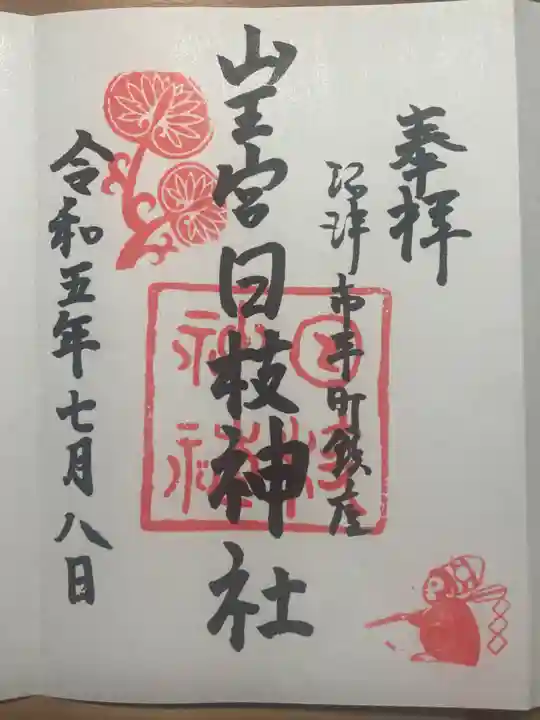 奉拝
沼津市平町鎮座
山王宮日枝神社
日枝神社
令和五年七月八日